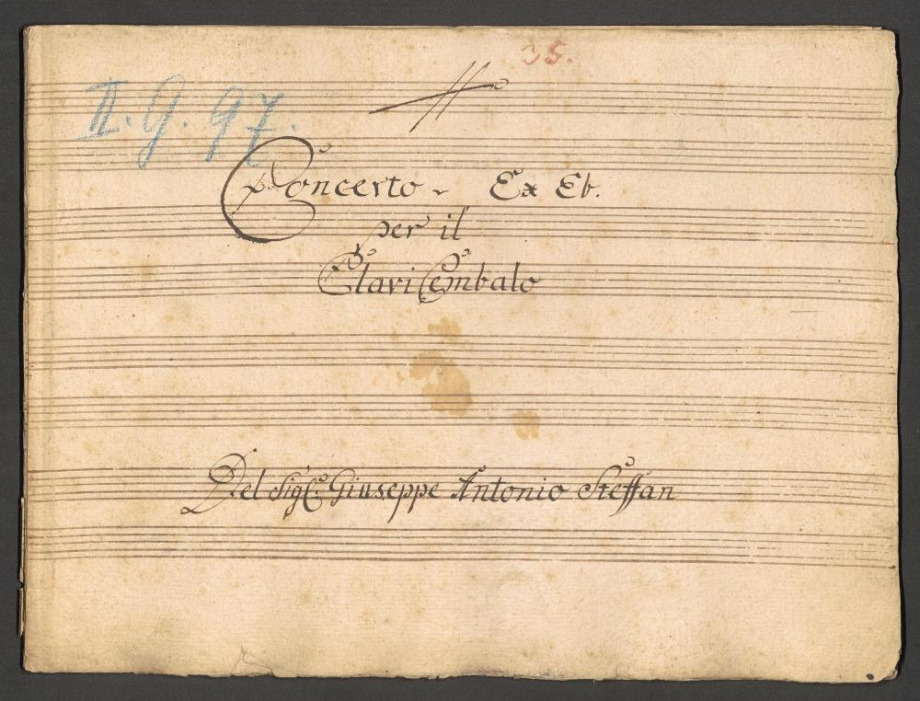 35.
II. G. 97.
Concerto Ex Eb.
per il
Clavi Cembalo
Del Sigr. Giuseppe Antonio Steffan